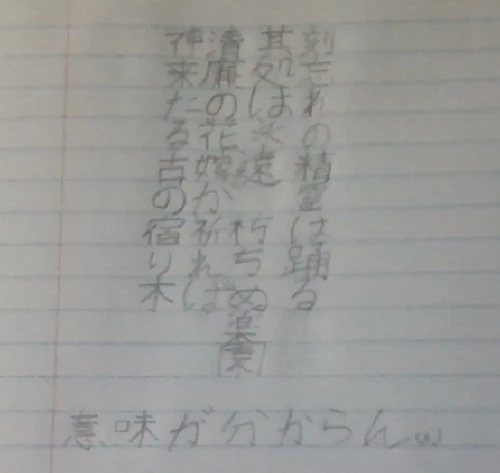 刻忘れの精霊は踊る
其処は永遠 朽ちぬ楽園
清廉の花嫁が祈れば
神来たる古の宿り木
意味が分からんw